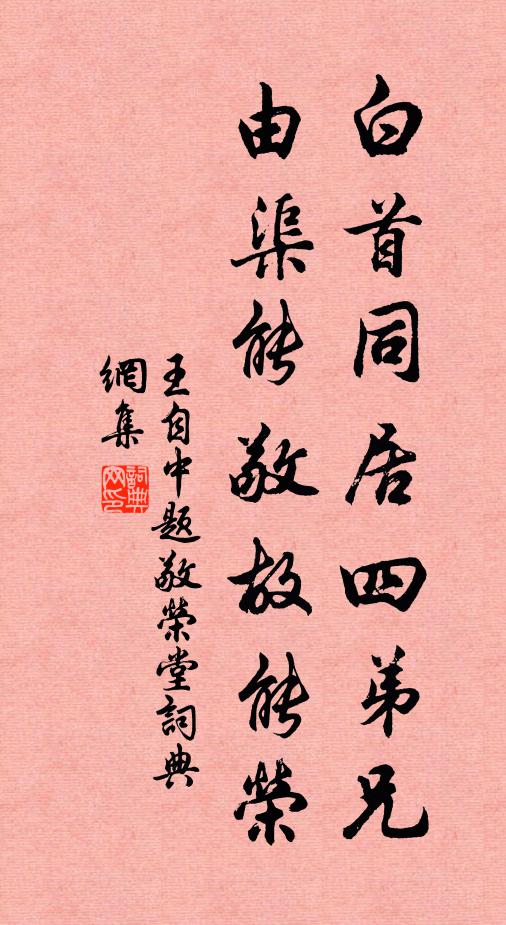 白首同居四弟兄
由渠能敬故能榮
王自中题敬榮堂詞典
網集
詞典
网印